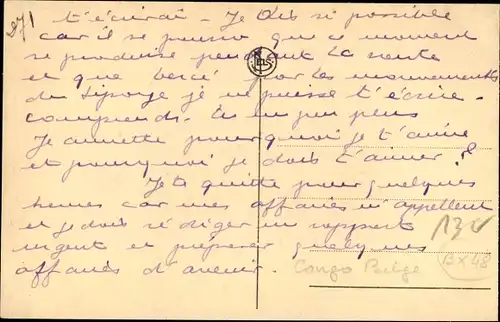 271
t'écrirai - Je dis si possible
car il se pourra que ce moment
se produise pendant la route
et que bercé par les mouvements
du tipoye je ne puisse t'écrire.
Comprends-tu un peu
Jeannette pourquoi je t'aime
et pourquoi je dois t'aimer?
Je te quitte pour quelques
heures car mes affaires m'appellent
et je dois rédiger un rapport
urgent et préparer quelques
affaires d'avenir.
130
Congo Belge
BX48